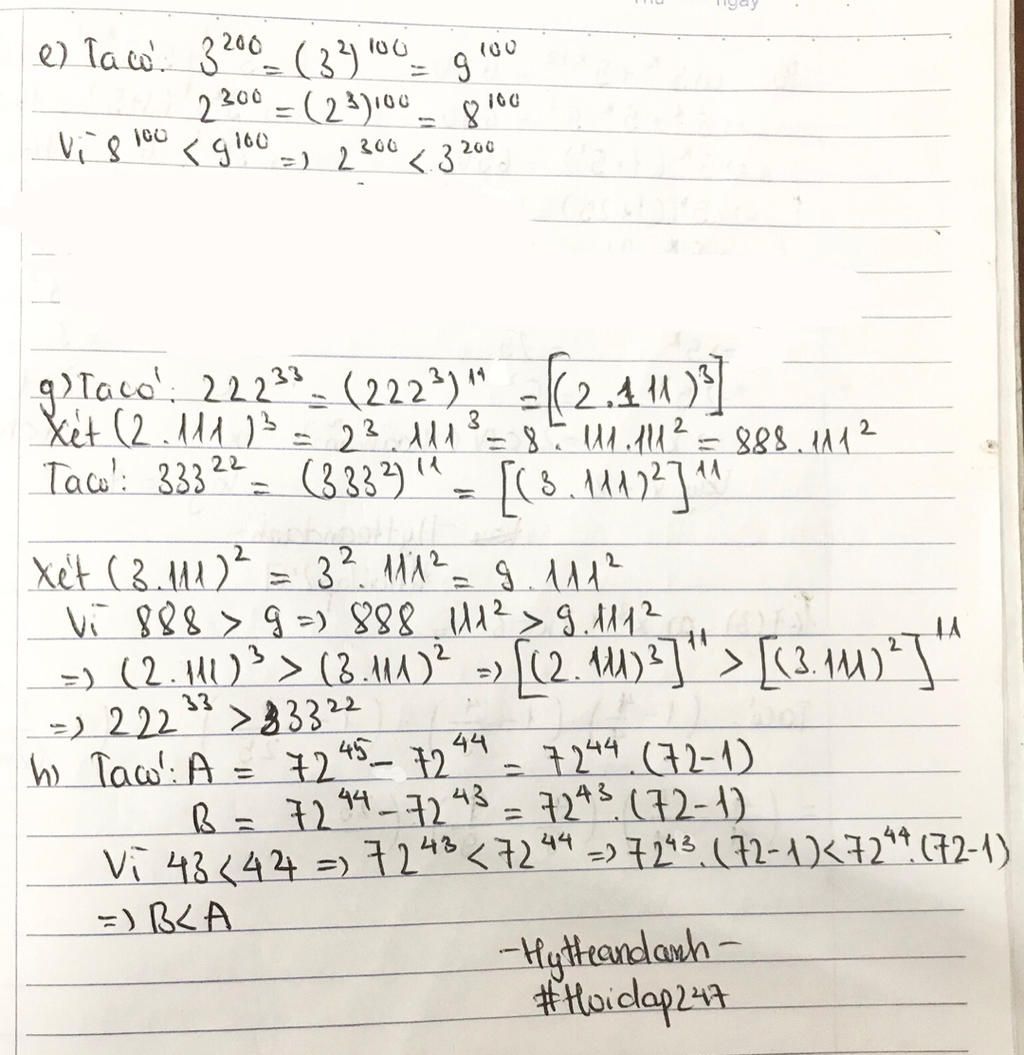 ngày
e) Ta có: 3^200 = (3^2)^100 = 9^100
2^300 = (2^3)^100 = 8^100
Vì 8^100 < 9^100 => 2^300 < 3^200
g) Ta có: 222^33 = (222^3)^11 = [(2.111)^3]
Xét (2.111)^3 = 2^3.111^3 = 8.111.111^2 = 888.111^2
Ta có: 333^22 = (333^2)^11 = [(3.111)^2]^11
Xét (3.111)^2 = 3^2.111^2 = 9.111^2
Vì 888 > 9 => 888.111^2 > 9.111^2
=> (2.111)^3 > (3.111)^2 => [(2.111)^3]^11 > [(3.111)^2]^11
=> 222^33 > 333^22
h) Ta có: A = 72^45 - 72^44 = 72^44.(72-1)
B = 72^44 - 72^43 = 72^43.(72-1)
Vì 43 < 44 => 72^43 < 72^44 => 72^43.(72-1) < 72^44.(72-1)
=> B < A
#Hoidap247